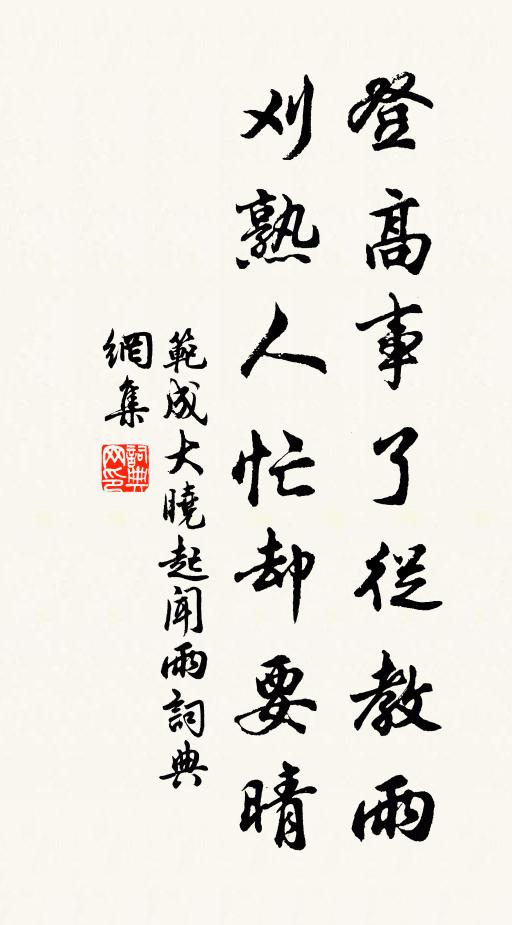 登高事了從教雨
刈熟人忙却要晴
範成大曉起聞雨詞典
網集
詞典
网印